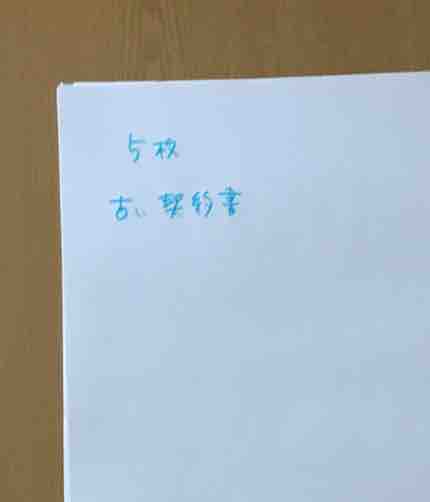 5枚
古い契約書